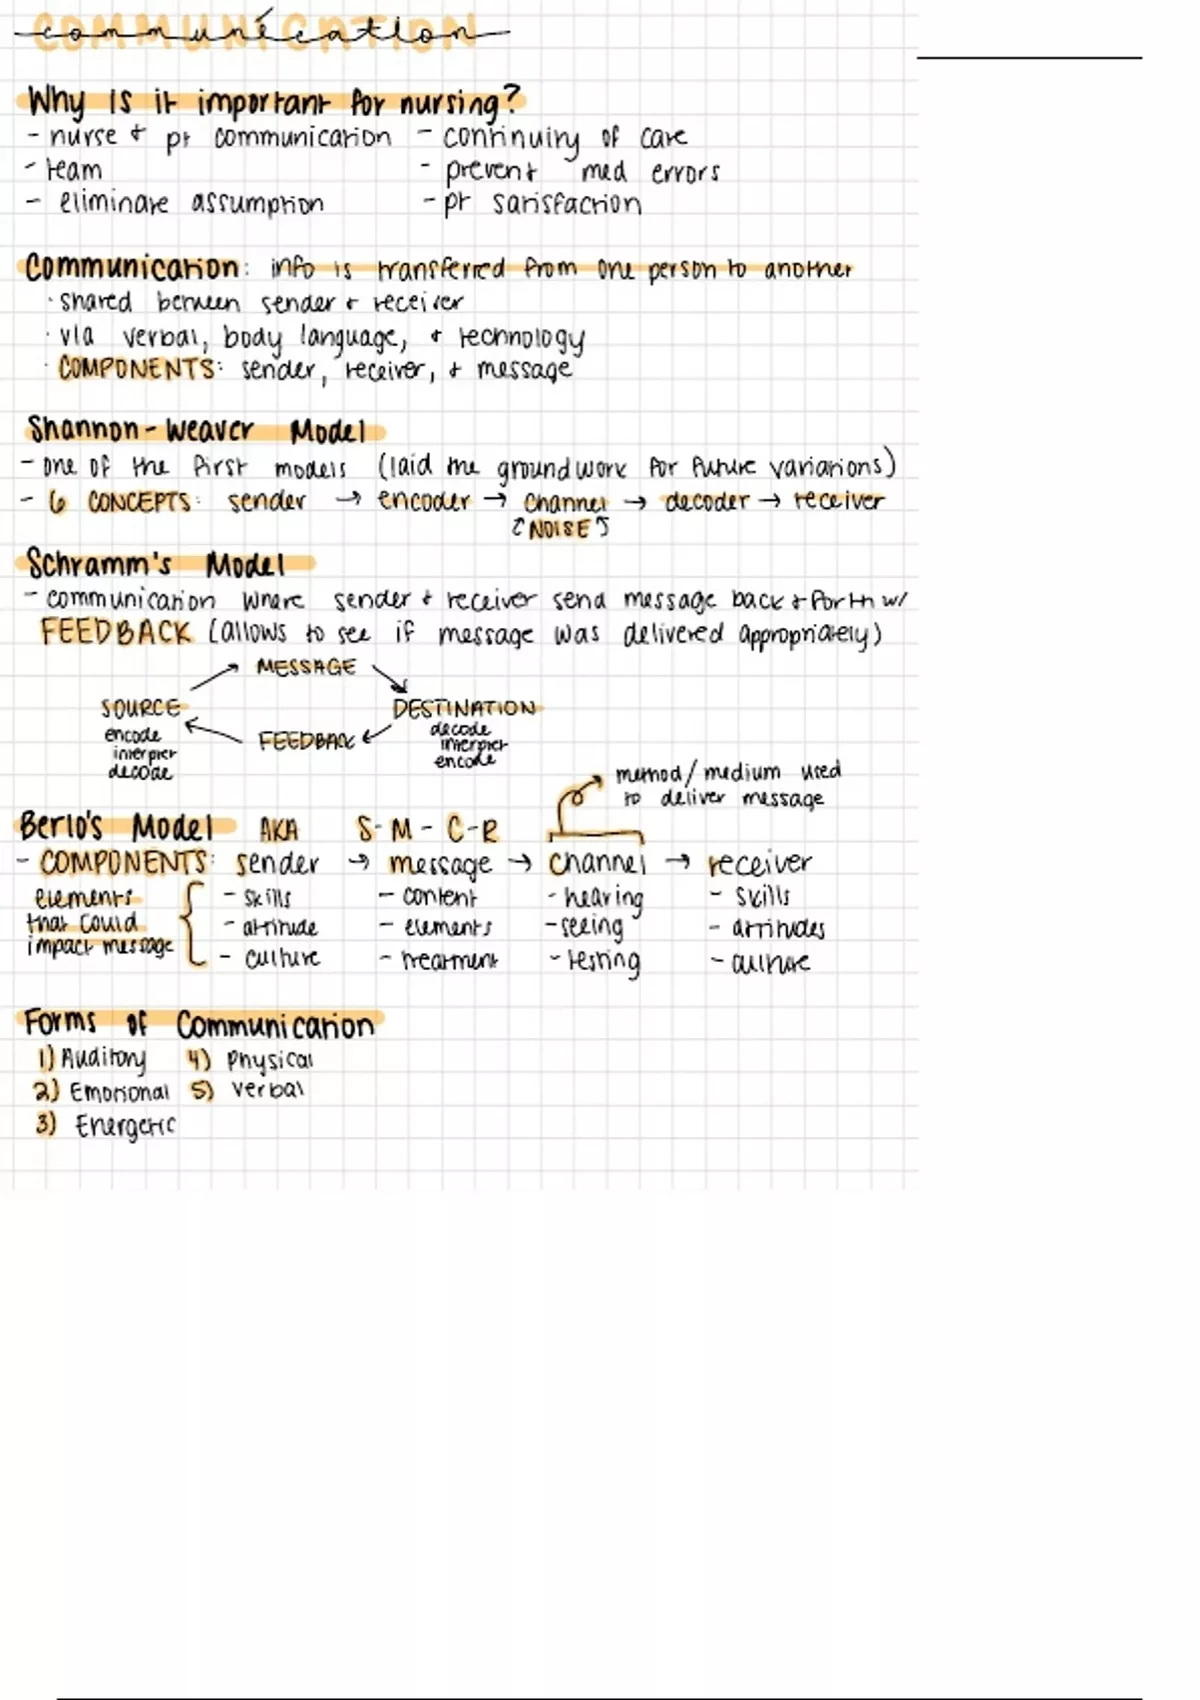 COMMUNICATION
communication
Why is it important for nursing?
- nurse + pt communication - continuity of care
- team - prevent med errors
- eliminate assumption - pt satisfaction
Communication: info is transferred from one person to another
· shared between sender + receiver
· via verbal, body language, + technology
· COMPONENTS: sender, receiver, + message
Shannon-Weaver Model
- one of the first models (laid the groundwork for future variations)
- 6 CONCEPTS: sender → encoder → channel → decoder → receiver
[NOISE]
Schramm's Model
- communication where sender + receiver send message back + forth w/
FEEDBACK (allows to see if message was delivered appropriately)
MESSAGE
SOURCE DESTINATION
encode decode
interpret interpret
decode encode
FEEDBACK
method/medium used
to deliver message
Berlo's Model AKA S-M-C-R
- COMPONENTS: sender → message → channel → receiver
elements - skills - content - hearing - skills
that could - attitude - elements - seeing - attitudes
impact message - culture - treatment - testing - culture
Forms of Communication
1) Auditory 4) Physical
2) Emotional 5) Verbal
3) Energetic